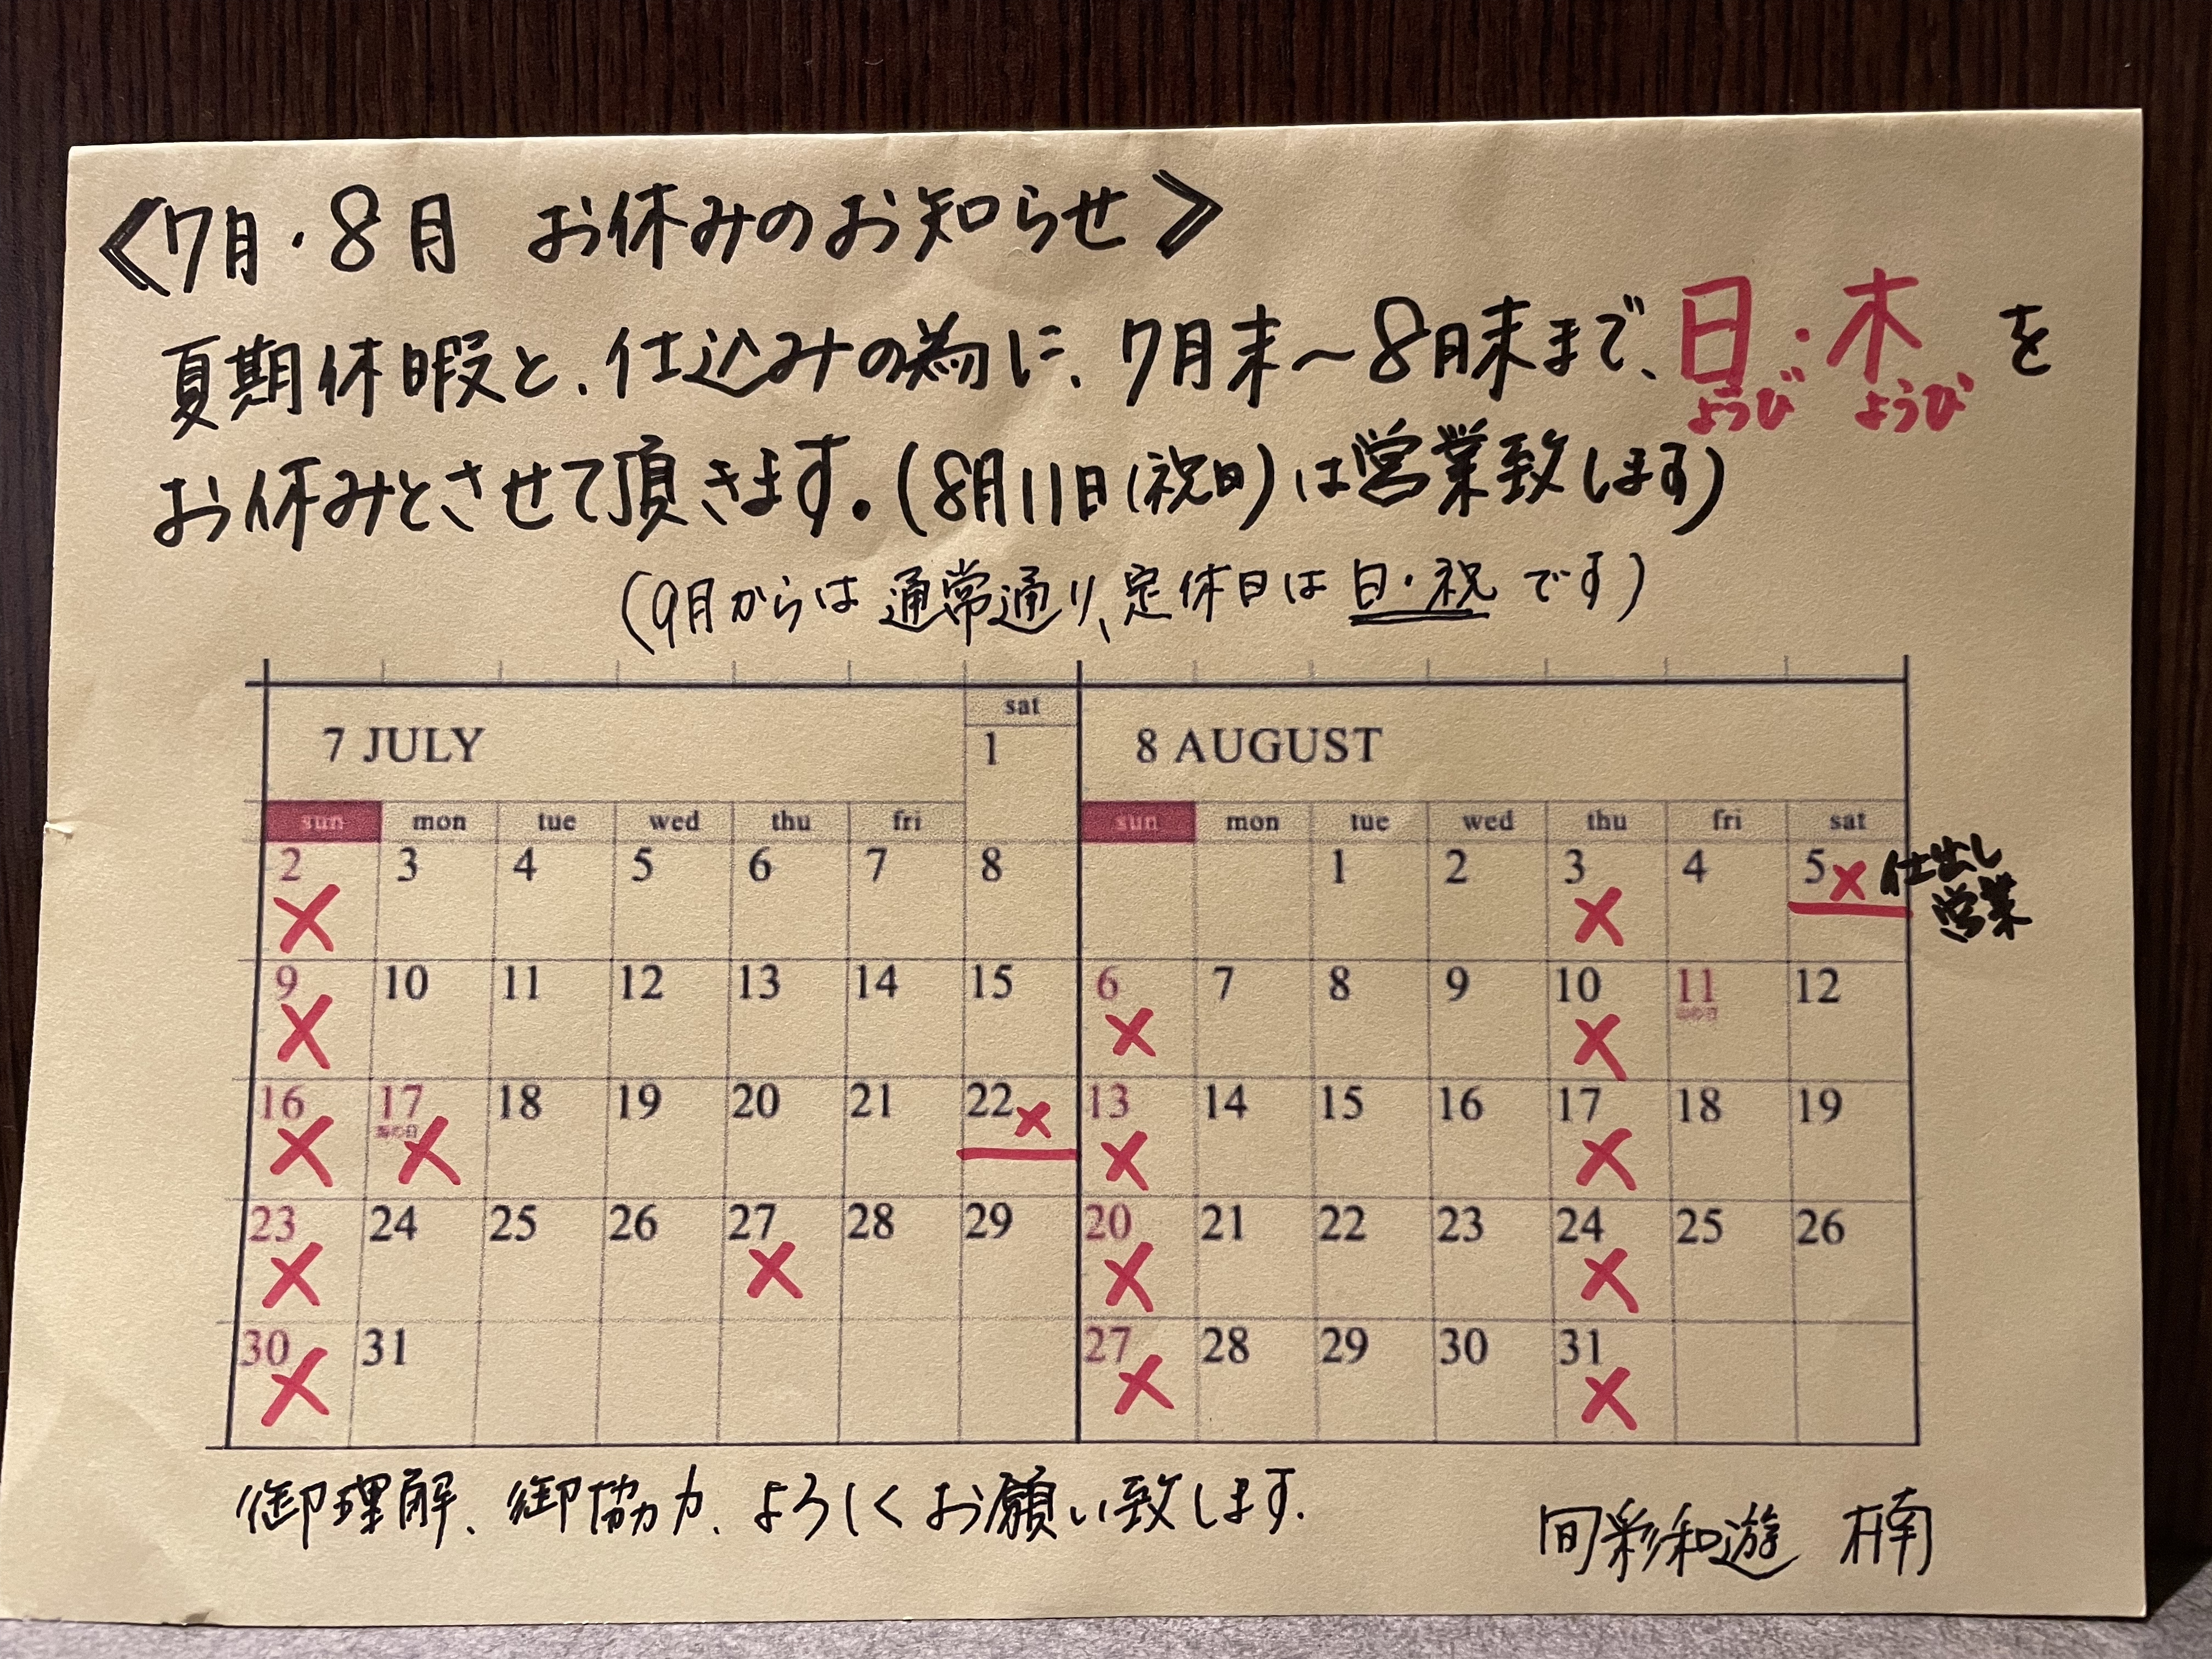 ≪7月・8月 お休みのお知らせ≫
夏期休暇と、仕込みの為に、7月末〜8月末まで、日ようび・木ようびを
お休みとさせて頂きます。(8月11日(祝日)は営業致します)
(9月からは通常通り、定休日は日・祝です)
7 JULY
sat
1
sun mon tue wed thu fri
2 × 3 4 5 6 7 8
9 × 10 11 12 13 14 15
16 × 17 海の日 × 18 19 20 21 22 ×
23 × 24 25 26 27 × 28 29
30 × 31
8 AUGUST
sun mon tue wed thu fri sat
1 2 3 × 4 5 × 仕出し営業
6 × 7 8 9 10 × 11 山の日 12
13 × 14 15 16 17 × 18 19
20 × 21 22 23 24 × 25 26
27 × 28 29 30 31 ×
御理解、御協力、よろしくお願い致します.
旬彩和遊 楠